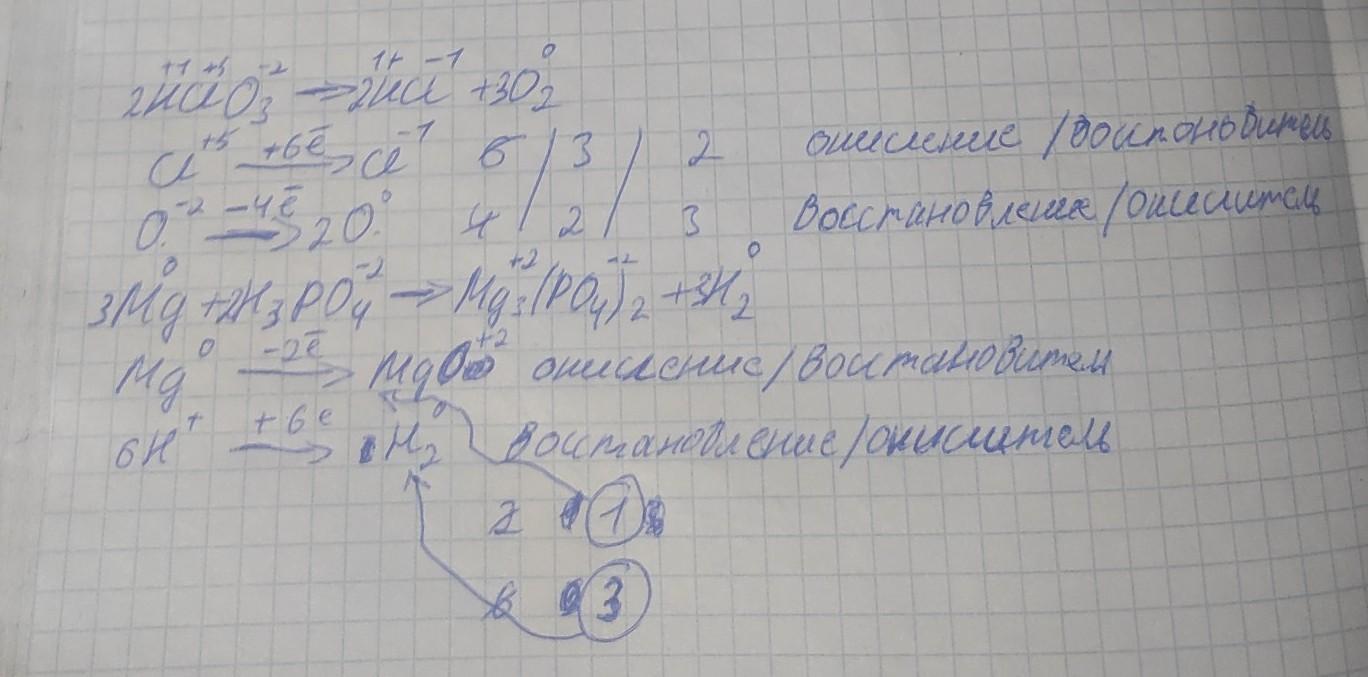 +1 +5 -2 1+ -1 0
2HClO3 → 2HCl + 3O2
Cl+5 +6ē → Cl-1 6 / 3 / 2 окисление / Восстоновитель
O-2 -4ē → 2O0 4 / 2 / 3 Восстановление / окислитель
3Mg0 + 2H3PO4-2 → Mg3+2(PO4)2-2 + 3H20
Mg0 -2ē → Mg+2 окисление / Восстановитель
6H+ +6ē → H20 Восстановление / окислитель
2 1
6 3